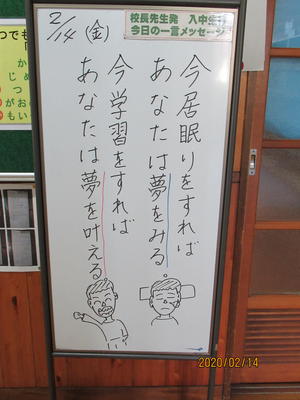 2/14(金)
校長先生発 入中生
今日の一言メッセージ
今居眠りをすれば
あなたは夢をみる。
今学習をすれば
あなたは夢を叶える
2020/02/14